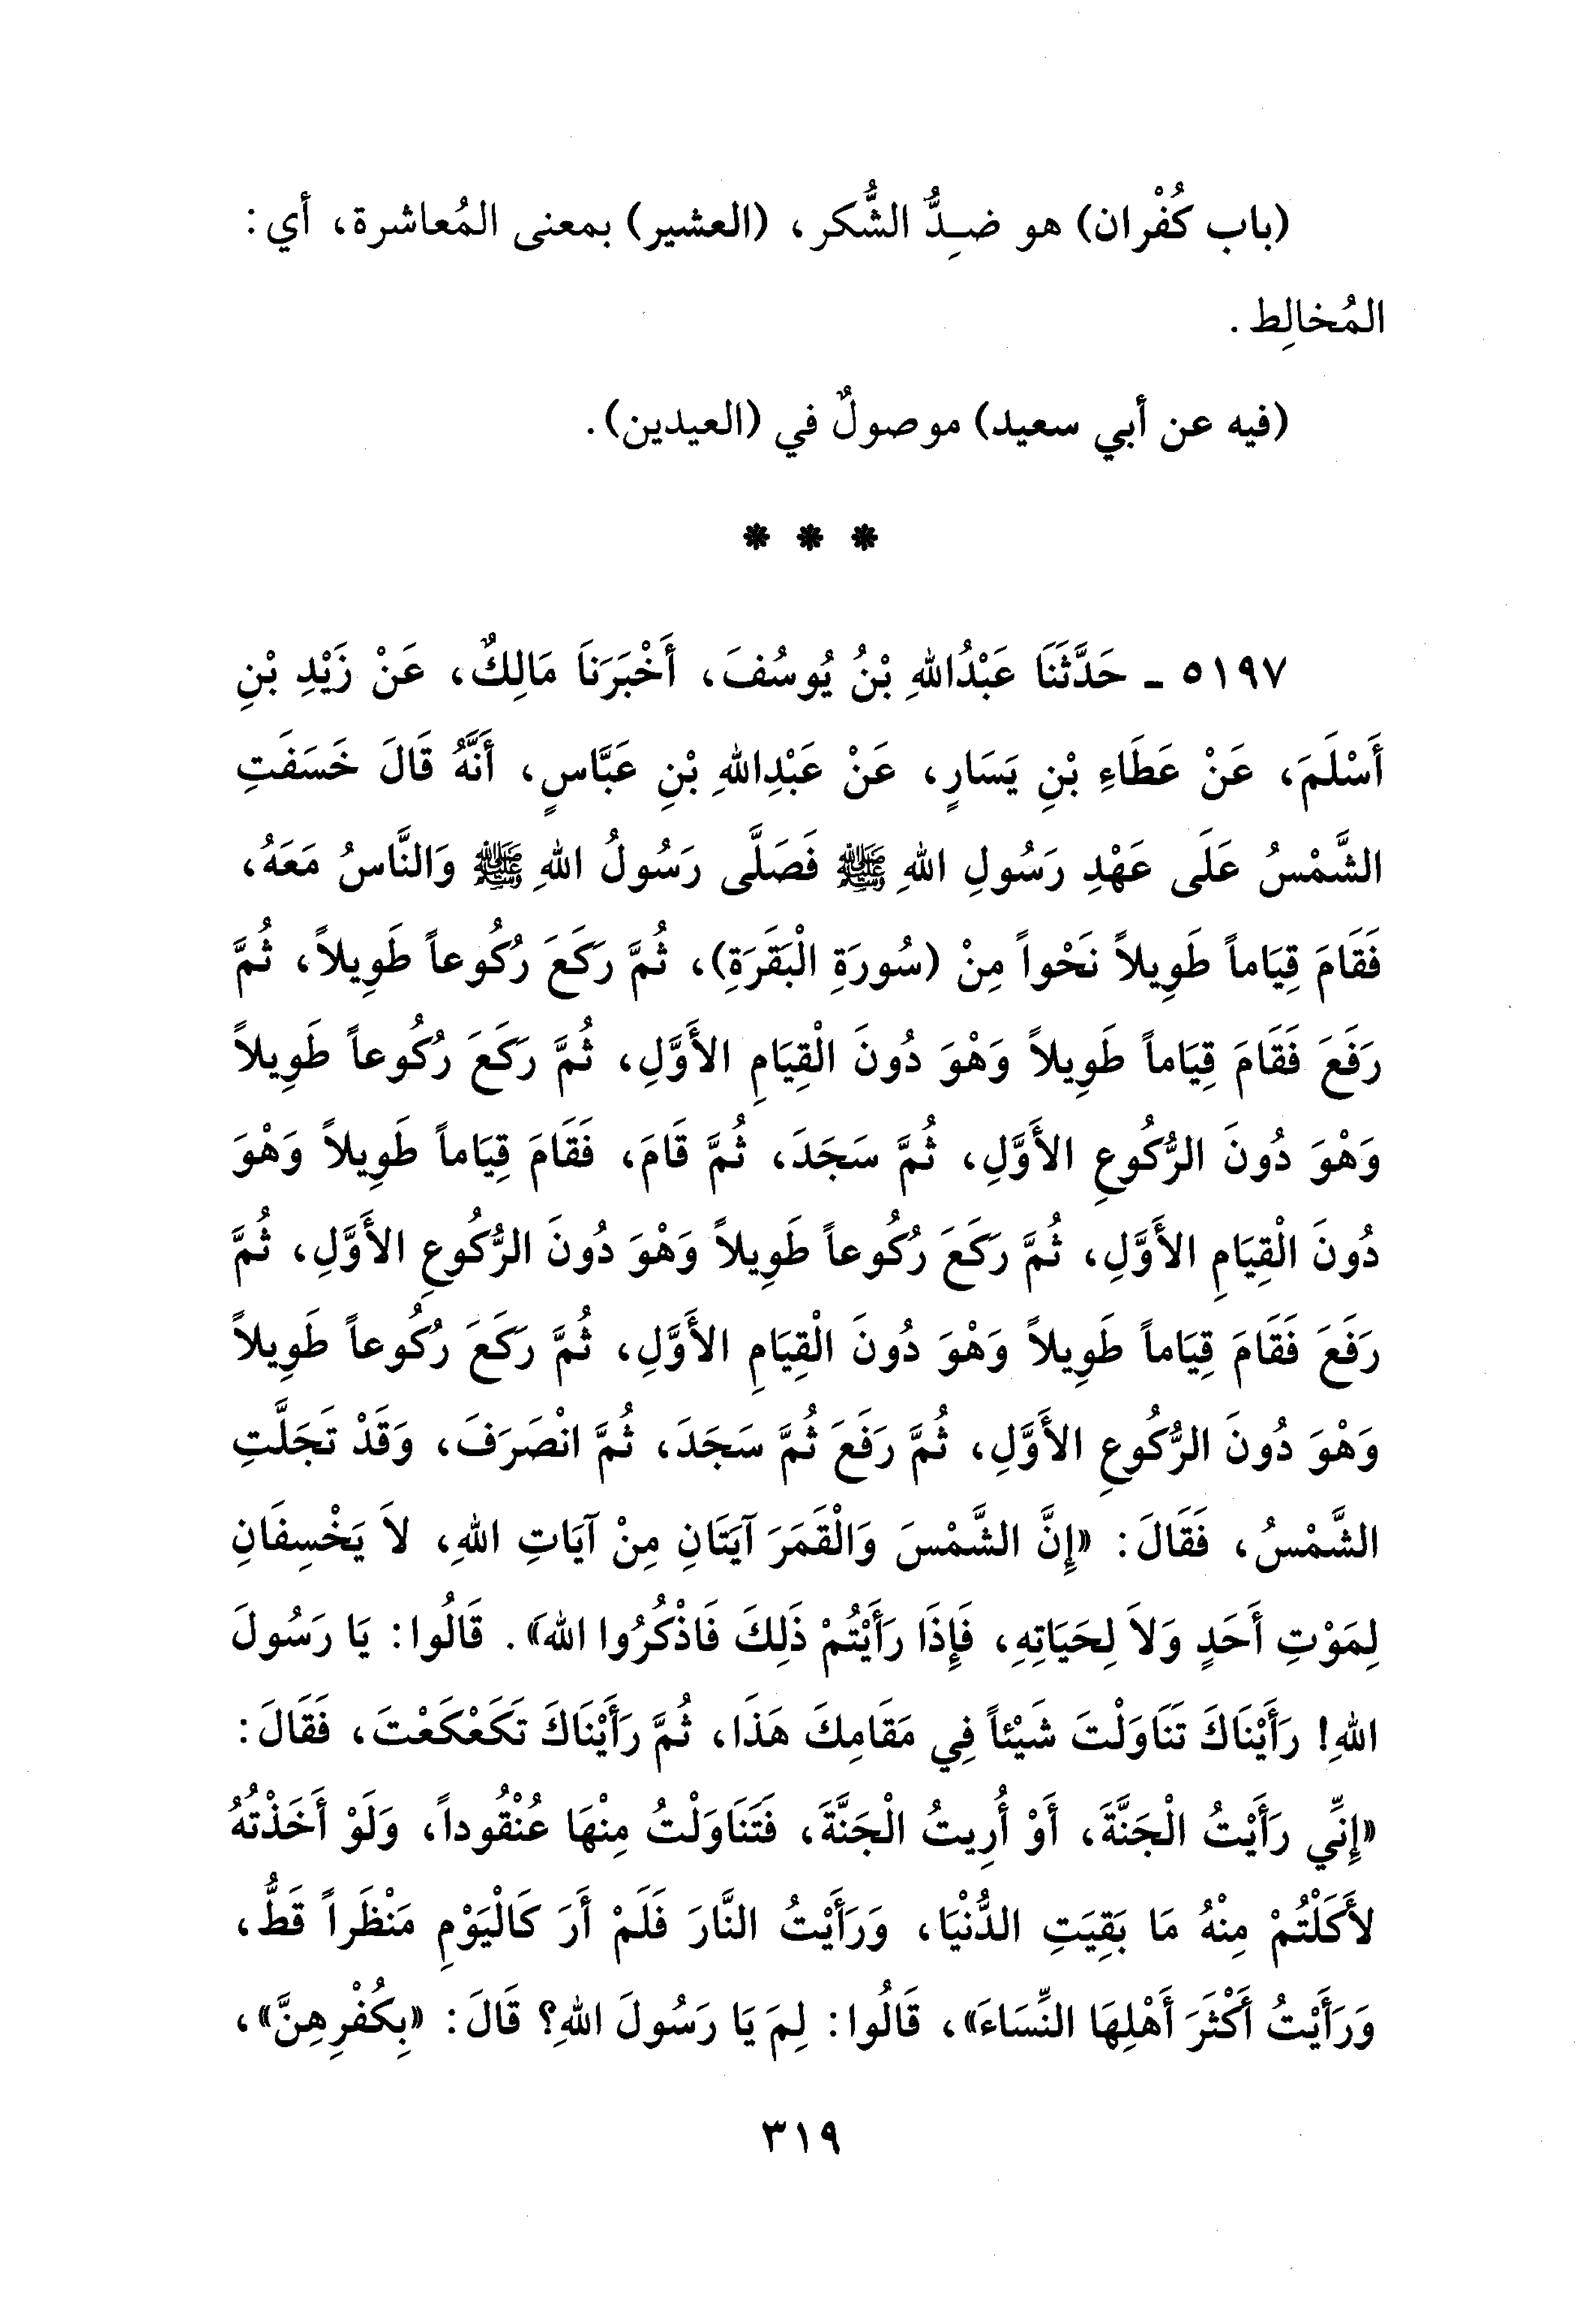 (باب كُفْران) هو ضِدُّ الشُّكر، (العشير) بمعنى المُعاشرة، أي:
المُخالِط.
(فيه عن أبي سعيد) موصولٌ في (العيدين).
* * *
٥١٩٧ ـ حَدَّثَنَا عَبْدُاللهِ بْنُ يُوسُفَ، أَخْبَرَنَا مَالِكٌ، عَنْ زَيْدِ بْنِ
أَسْلَمَ، عَنْ عَطَاءِ بْنِ يَسَارٍ، عَنْ عَبْدِاللهِ بْنِ عَبَّاسٍ، أَنَّهُ قَالَ خَسَفَتِ
الشَّمْسُ عَلَى عَهْدِ رَسُولِ اللهِ ﷺ فَصَلَّى رَسُولُ اللهِ ﷺ وَالنَّاسُ مَعَهُ،
فَقَامَ قِيَاماً طَوِيلاً نَحْواً مِنْ (سُورَةِ الْبَقَرَةِ)، ثُمَّ رَكَعَ رُكُوعاً طَوِيلاً، ثُمَّ
رَفَعَ فَقَامَ قِيَاماً طَوِيلاً وَهْوَ دُونَ الْقِيَامِ الأَوَّلِ، ثُمَّ رَكَعَ رُكُوعاً طَوِيلاً
وَهْوَ دُونَ الرُّكُوعِ الأَوَّلِ، ثُمَّ سَجَدَ، ثُمَّ قَامَ، فَقَامَ قِيَاماً طَوِيلاً وَهْوَ
دُونَ الْقِيَامِ الأَوَّلِ، ثُمَّ رَكَعَ رُكُوعاً طَوِيلاً وَهْوَ دُونَ الرُّكُوعِ الأَوَّلِ، ثُمَّ
رَفَعَ فَقَامَ قِيَاماً طَوِيلاً وَهْوَ دُونَ الْقِيَامِ الأَوَّلِ، ثُمَّ رَكَعَ رُكُوعاً طَوِيلاً
وَهْوَ دُونَ الرُّكُوعِ الأَوَّلِ، ثُمَّ رَفَعَ ثُمَّ سَجَدَ، ثُمَّ انْصَرَفَ، وَقَدْ تَجَلَّتِ
الشَّمْسُ، فَقَالَ: «إِنَّ الشَّمْسَ وَالْقَمَرَ آيَتَانِ مِنْ آيَاتِ اللهِ، لاَ يَخْسِفَانِ
لِمَوْتِ أَحَدٍ وَلاَ لِحَيَاتِهِ، فَإِذَا رَأَيْتُمْ ذَلِكَ فَاذْكُرُوا اللهَ». قَالُوا: يَا رَسُولَ
اللهِ! رَأَيْنَاكَ تَنَاوَلْتَ شَيْئاً فِي مَقَامِكَ هَذَا، ثُمَّ رَأَيْنَاكَ تَكَعْكَعْتَ، فَقَالَ:
«إِنِّي رَأَيْتُ الْجَنَّةَ، أَوْ أُرِيتُ الْجَنَّةَ، فَتَنَاوَلْتُ مِنْهَا عُنْقُوداً، وَلَوْ أَخَذْتُهُ
لأَكَلْتُمْ مِنْهُ مَا بَقِيَتِ الدُّنْيَا، وَرَأَيْتُ النَّارَ فَلَمْ أَرَ كَالْيَوْمِ مَنْظَراً قَطُّ،
وَرَأَيْتُ أَكْثَرَ أَهْلِهَا النِّسَاءَ»، قَالُوا: لِمَ يَا رَسُولَ اللهِ؟ قَالَ: «بِكُفْرِهِنَّ»،
٣١٩